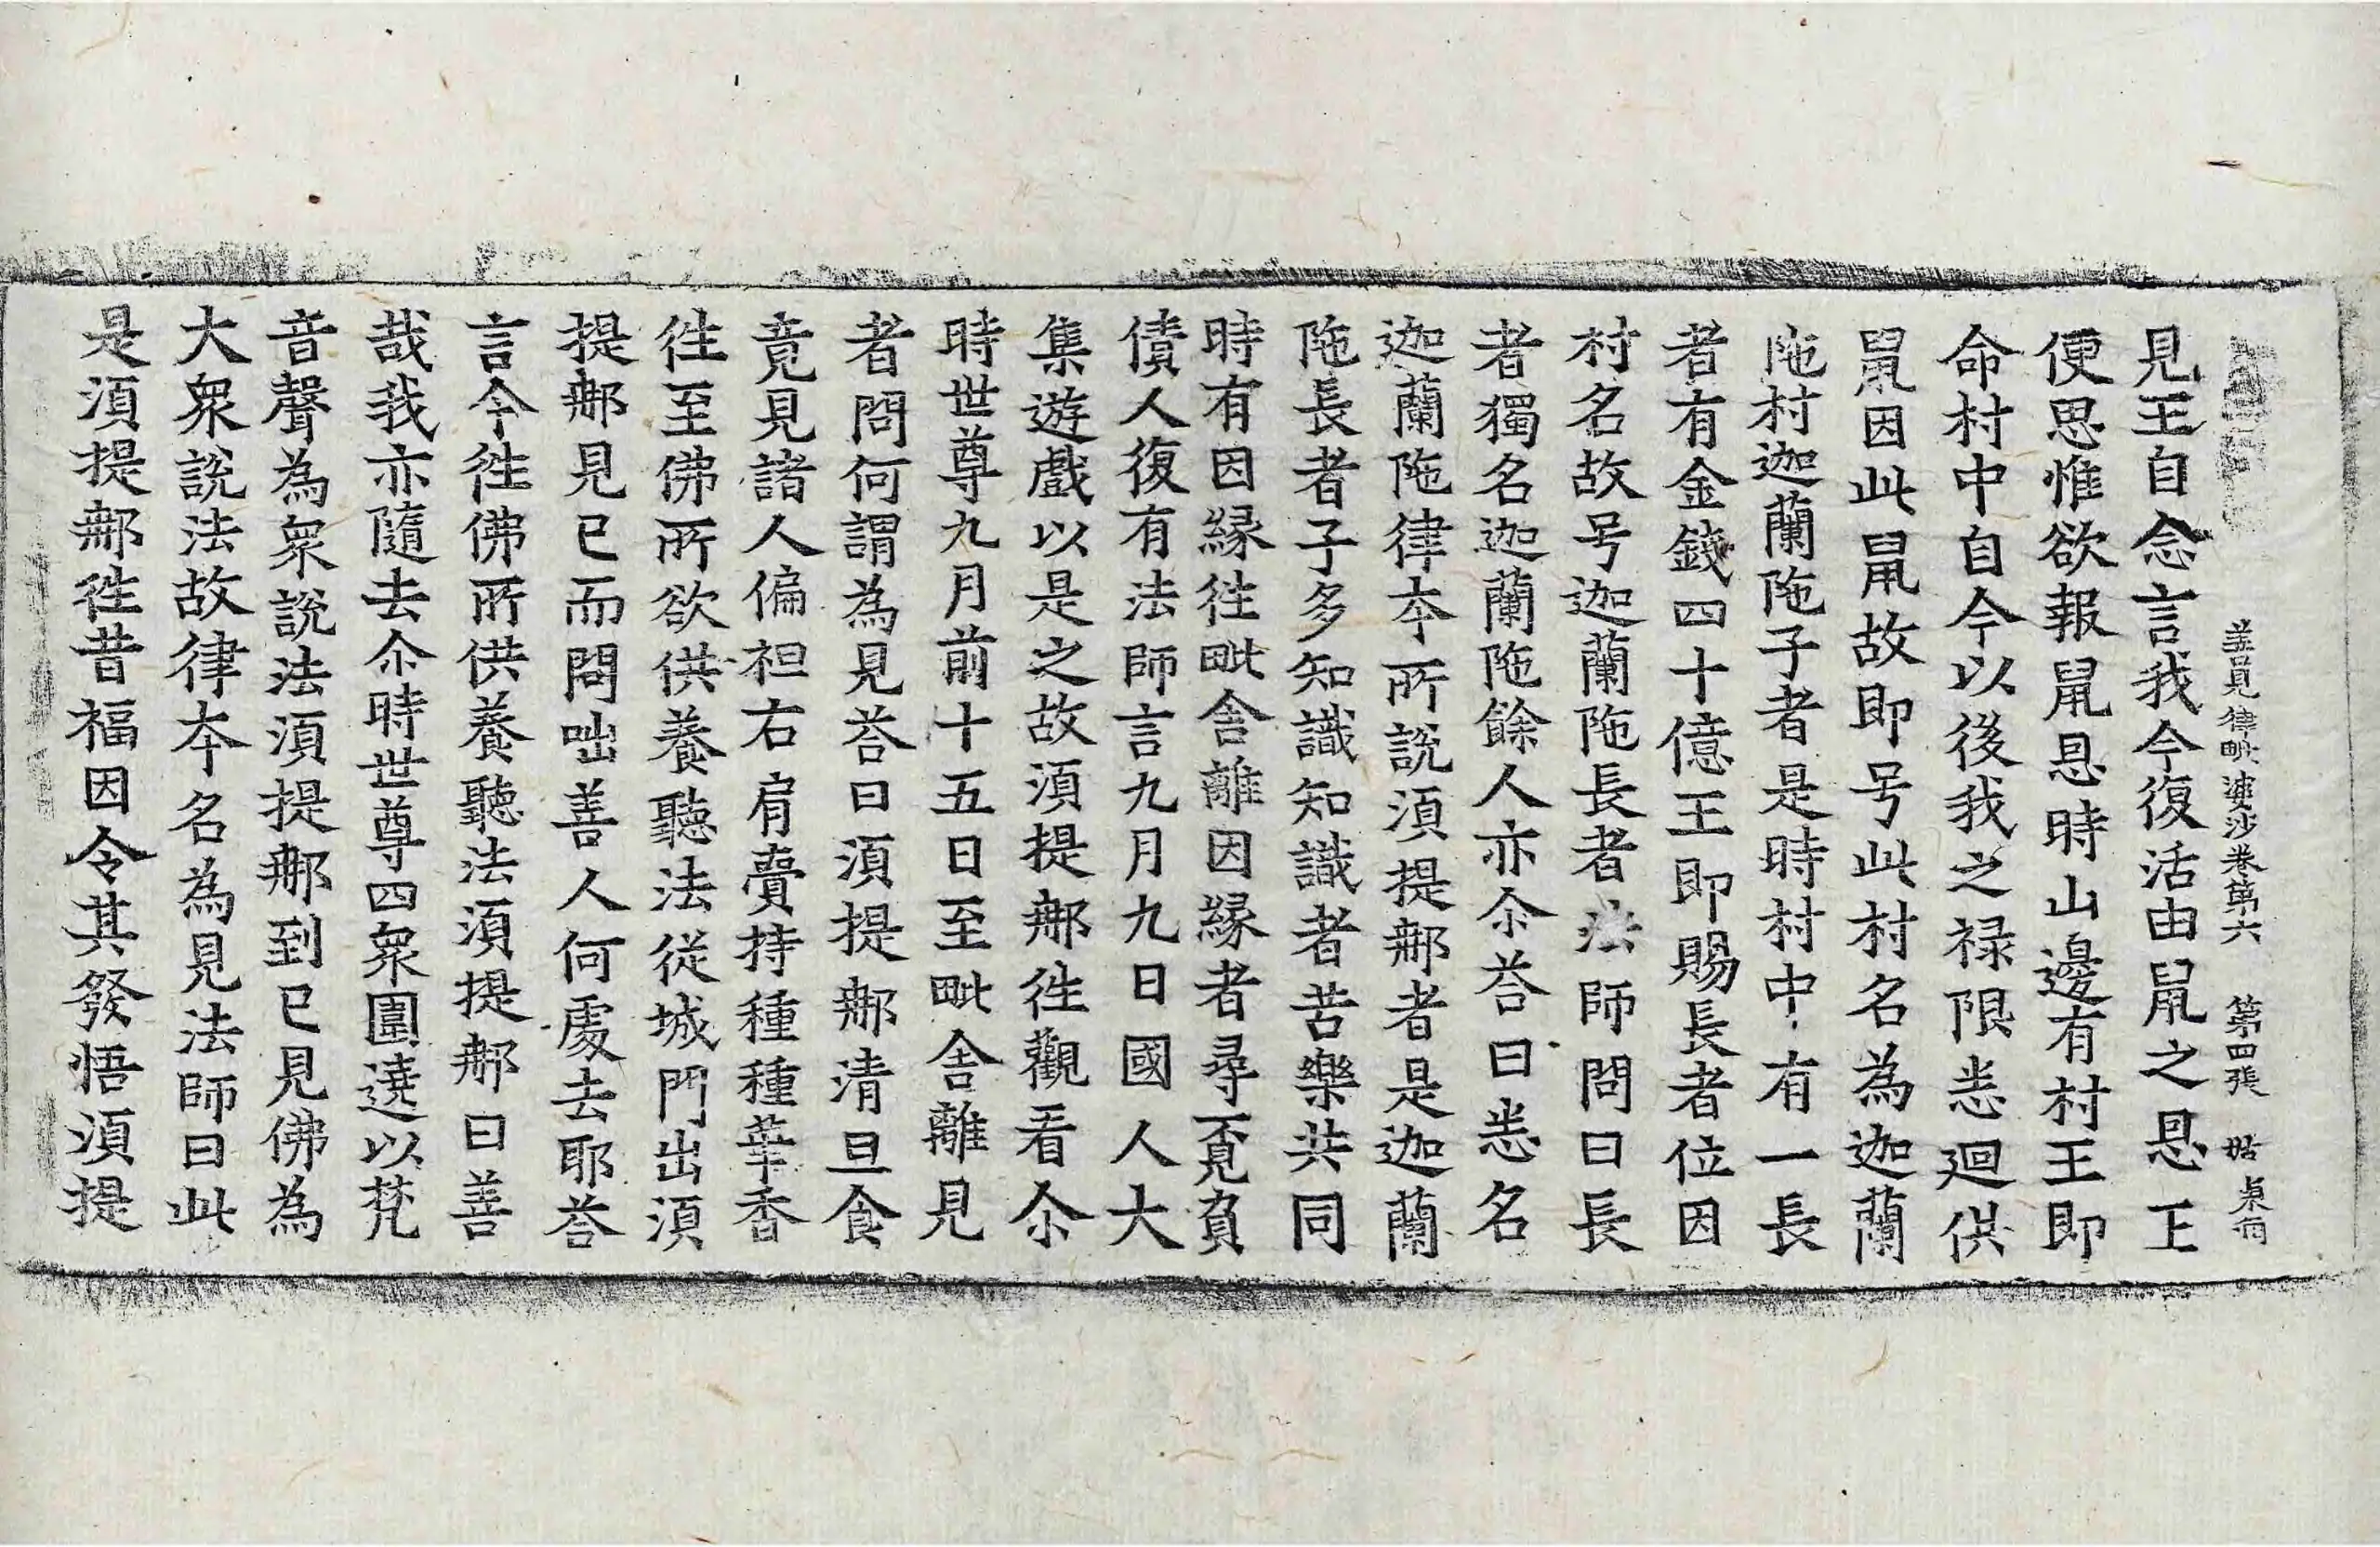 善見律毗婆沙卷第六 第四張
見王自念言我今復活由鼠之恩王
便思惟欲報鼠恩時山邊有村王即
命村中自今以後我之禄限悉迴供
鼠因此鼠故即号此村名為迦蘭
陁村迦蘭陁子者是時村中有一長
者有金錢四十億王即賜長者位因
村名故号迦蘭陁長者法師問曰長
者獨名迦蘭陁餘人亦尒荅曰悉名
迦蘭陁律本所說須提那者是迦蘭
陁長者子多知識知識者苦樂共同
時有因縁徃毗舍離因縁者尋覔負
債人復有法師言九月九日國人大
集遊戲以是之故須提那徃觀看尒
時世尊九月前十五日至毗舍離見
者問何謂為見荅曰須提那清旦食
竟見諸人偏袒右肩賷持種種華香
徃至佛所欲供養聽法從城門出須
提那見已而問咄善人何處去耶荅
言今徃佛所供養聽法須提那曰善
哉我亦隨去尒時世尊四衆圍遶以梵
音聲為衆說法須提那到已見佛為
大衆說法故律本名為見法師曰此
是須提那徃昔福因令其發悟須提